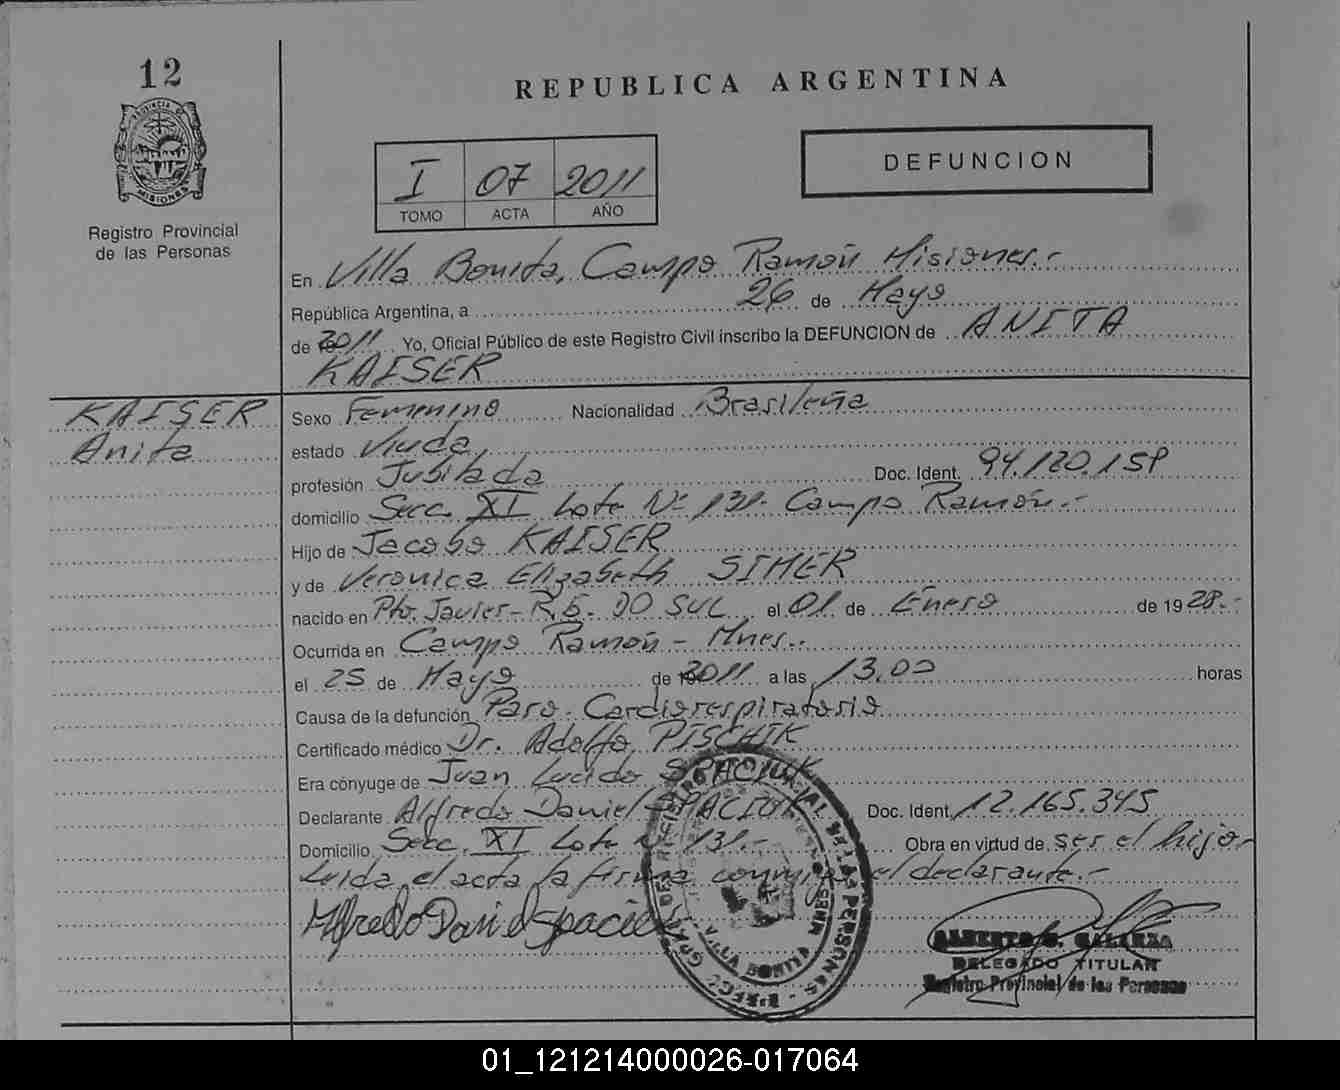 12
REPUBLICA ARGENTINA
PROVINCIA DE
MISIONES
Registro Provincial
de las Personas
DEFUNCION
I 07 2011
TOMO ACTA AÑO
En Villa Bonita, Campo Ramón Misiones.-
República Argentina, a 26 de Mayo
de 2011 Yo, Oficial Público de este Registro Civil inscribo la DEFUNCION de ANITA
KAISER
KAISER
Anita
Sexo Femenino Nacionalidad Brasileña
estado Viuda
profesión Jubilada Doc. Ident. 94.120.158
domicilio Secc. XI Lote Nº 131- Campo Ramón.-
Hijo de Jacobo KAISER
y de Veronica Elizabeth SIMER
nacido en Pto. Javier- R.G. DO SUL el 01 de Enero de 1928.-
Ocurrida en Campo Ramón - Mnes..
el 25 de Mayo de 2011 a las 13.00 horas
Causa de la defunción Paro Cardiorespiratorio
Certificado médico Dr. Adolfo PISCHIK
Era cónyuge de Juan Lucido SPACIUK
Declarante Alfredo Daniel SPACIUK Doc. Ident. 12.165.345
Domicilio Secc. XI Lote Nº 131.- Obra en virtud de ser el hijo.-
Leida el acta la firma conmigo el declarante.-
Alfredo Daniel Spaciuk
VILLA BONITA
DELEGADO TITULAR
Registro Provincial de las Personas
01_121214000026-017064